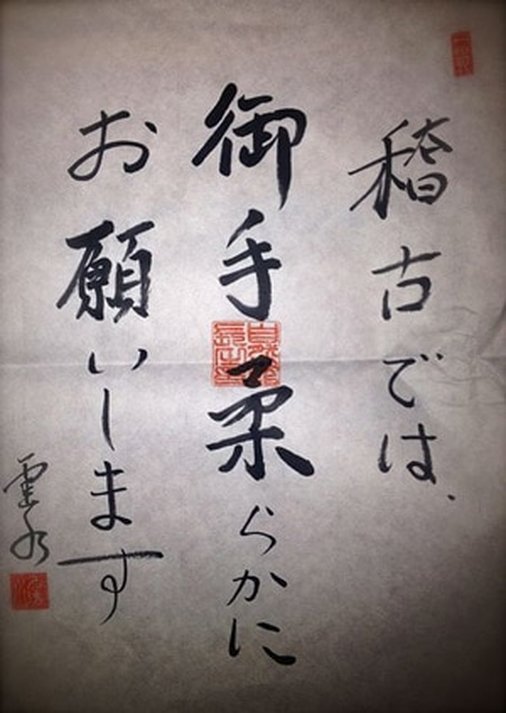 稽古では、
御手柔らかに
お願いします